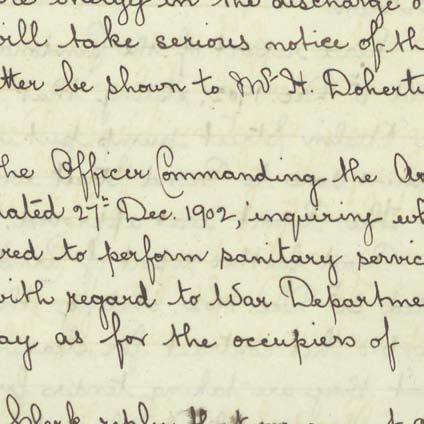 energy in the discharge o
will take serious notice of th
tter be shown to Mr H. Dohert
he Officer Commanding the A
dated 27th Dec. 1902, inquiring wh
red to perform sanitary servic
with regard to War Departme
ay as for the occupiers of
Clerk reply